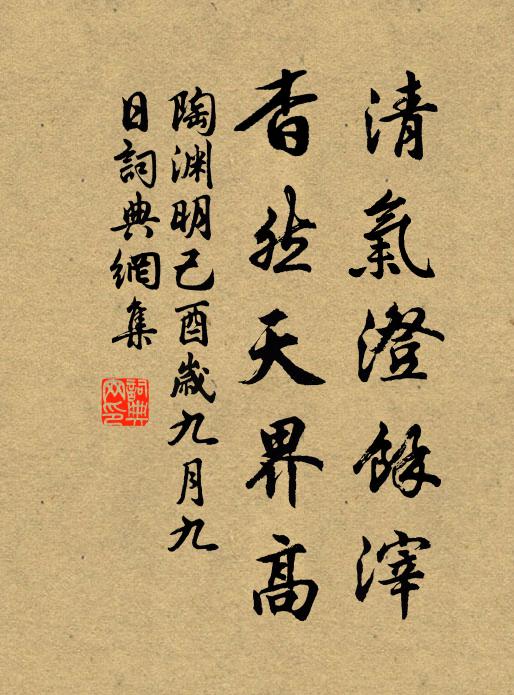 清氣澄餘滓
杳然天界高
陶淵明己酉歲九月九
日詞典網集
詞典網印